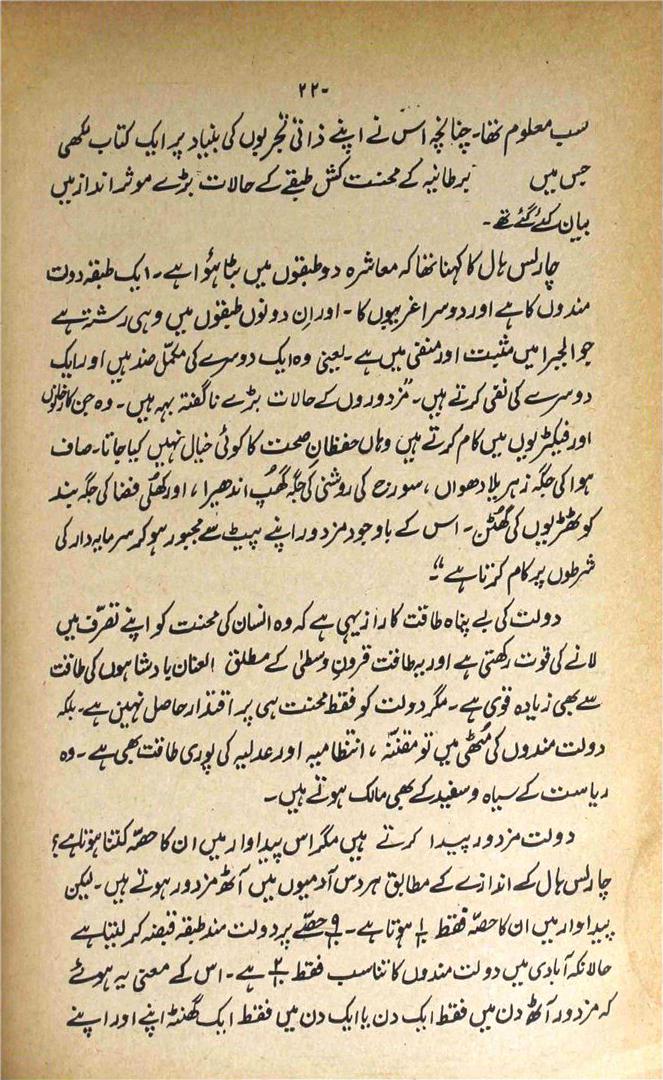 ۲۲۰
سب معلوم تھا۔ چنانچہ اس نے اپنے ذاتی تجربوں کی بنیاد پر ایک کتاب لکھی
جس میں برطانیہ کے محنت کش طبقے کے حالات بڑے موثر انداز میں
بیان کئے گئے تھے۔
چارلس ہال کا کہنا تھا کہ معاشرہ دو طبقوں میں بٹا ہؤا ہے۔ ایک طبقہ دولت
مندوں کا ہے اور دوسرا غریبوں کا۔ اور اِن دونوں طبقوں میں وہی رشتہ ہے
جو الجبرا میں مثبت اور منفی میں ہے۔ یعنی وہ ایک دوسرے کی مکمّل ضد ہیں اور ایک
دوسرے کی نفی کرتے ہیں۔ "مزدوروں کے حالات بڑے ناگفتہ بہہ ہیں۔ وہ جن کارخانوں
اور فیکٹریوں میں کام کرتے ہیں وہاں حفظانِ صحت کا کوئی خیال نہیں کیا جاتا۔ صاف
ہوا کی جگہ زہریلا دھواں، سورج کی روشنی کی جگہ گھُپ اندھیرا، اور کھُلی فضا کی جگہ بند
کوٹھڑیوں کی گھُٹن۔ اس کے باوجود مزدور اپنے پیٹ سے مجبور ہو کر سرمایہ دار کی
شرطوں پر کام کرتا ہے"۔
دولت کی بے پناہ طاقت کا راز یہی ہے کہ وہ انسان کی محنت کو اپنے تصرّف میں
لانے کی قوت رکھتی ہے اور یہ طاقت قرونِ وسطیٰ کے مطلق العنان بادشاہوں کی طاقت
سے بھی زیادہ قوی ہے۔ مگر دولت کو فقط محنت ہی پر اقتدار حاصل نہیں ہے۔ بلکہ
دولت مندوں کی مُٹھی میں تو مقنّنہ، انتظامیہ اور عدلیہ کی پوری طاقت بھی ہے۔ وہ
ریاست کے سیاہ و سفید کے بھی مالک ہوتے ہیں۔
دولت مزدور پیدا کرتے ہیں مگر اس پیداوار میں ان کا حصّہ کتنا ہوتا ہے؟
چارلس ہال کے اندازے کے مطابق ہر دس آدمیوں میں آٹھ مزدور ہوتے ہیں۔ لیکن
پیداوار میں ان کا حصّہ فقط ہوتا ہے۔ حصّے پر دولت مند طبقہ قبضہ کر لیتا ہے
حالانکہ آبادی میں دولت مندوں کا تناسب فقط ہے۔ اس کے معنی یہ ہوئے
کہ مزدور آٹھ دن میں فقط ایک دن یا ایک دن میں فقط ایک گھنٹہ اپنے اور اپنے